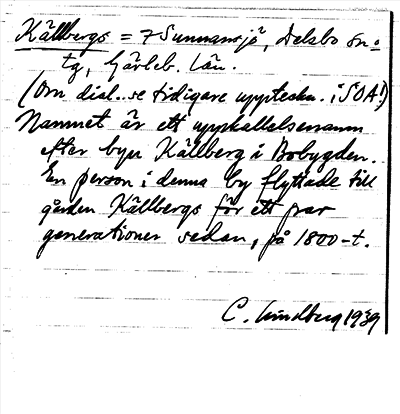 Källbergs = 7 Sunnansjö, Delsbo sn o
tg, Gävleb. län.
(Om dial. se tidigare uppteckn. i SOA!)
Namnet är ett uppkallelsenamn
efter byn Källberg i Bobygden.
En person i denna by flyttade till
gården Källbergs för ett par
generationer sedan, på 1800-t.
C. Lindberg 1939